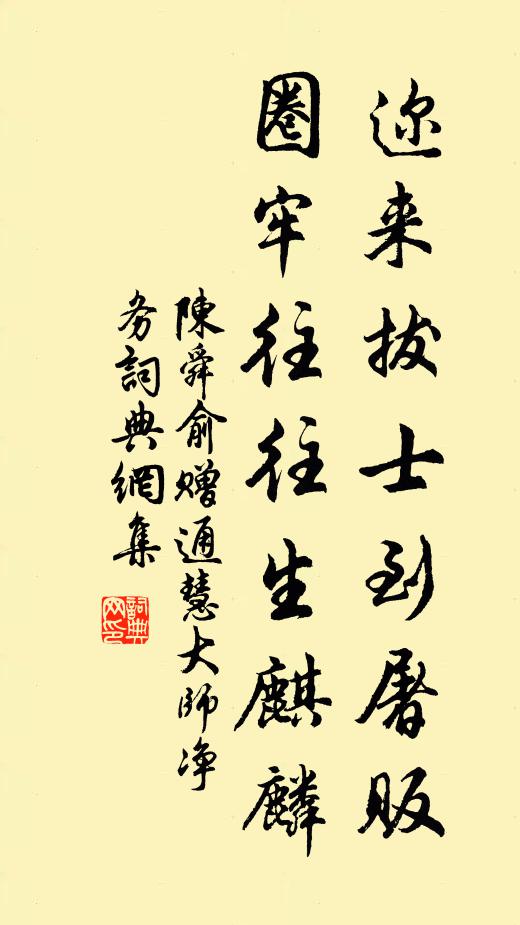 迩来拔士到屠贩
圈牢往往生麒麟
陳舜俞赠通慧大师净
务詞典網集
詞典
网印